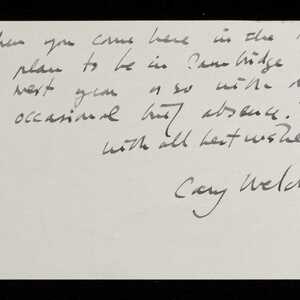 hen you come here in the
plan to be in Cambridge
next year or so with
occasional brief absence.
with all best wishe
Cary Weld